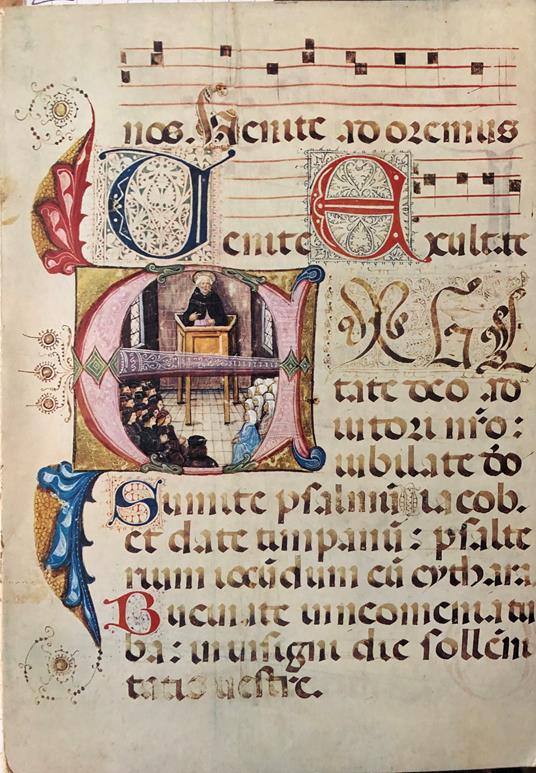 nos. Venite adoremus
Venite Exultate
EXUL
tate deo ad
iutori nr̄o:
iubilate dō
Sumite psalmū iacob.
et date timpanū: psalte
rium iocūdum cū cythara
Bucinate in neomenia tu
ba: in insigni die sollēni
tatis uestre.